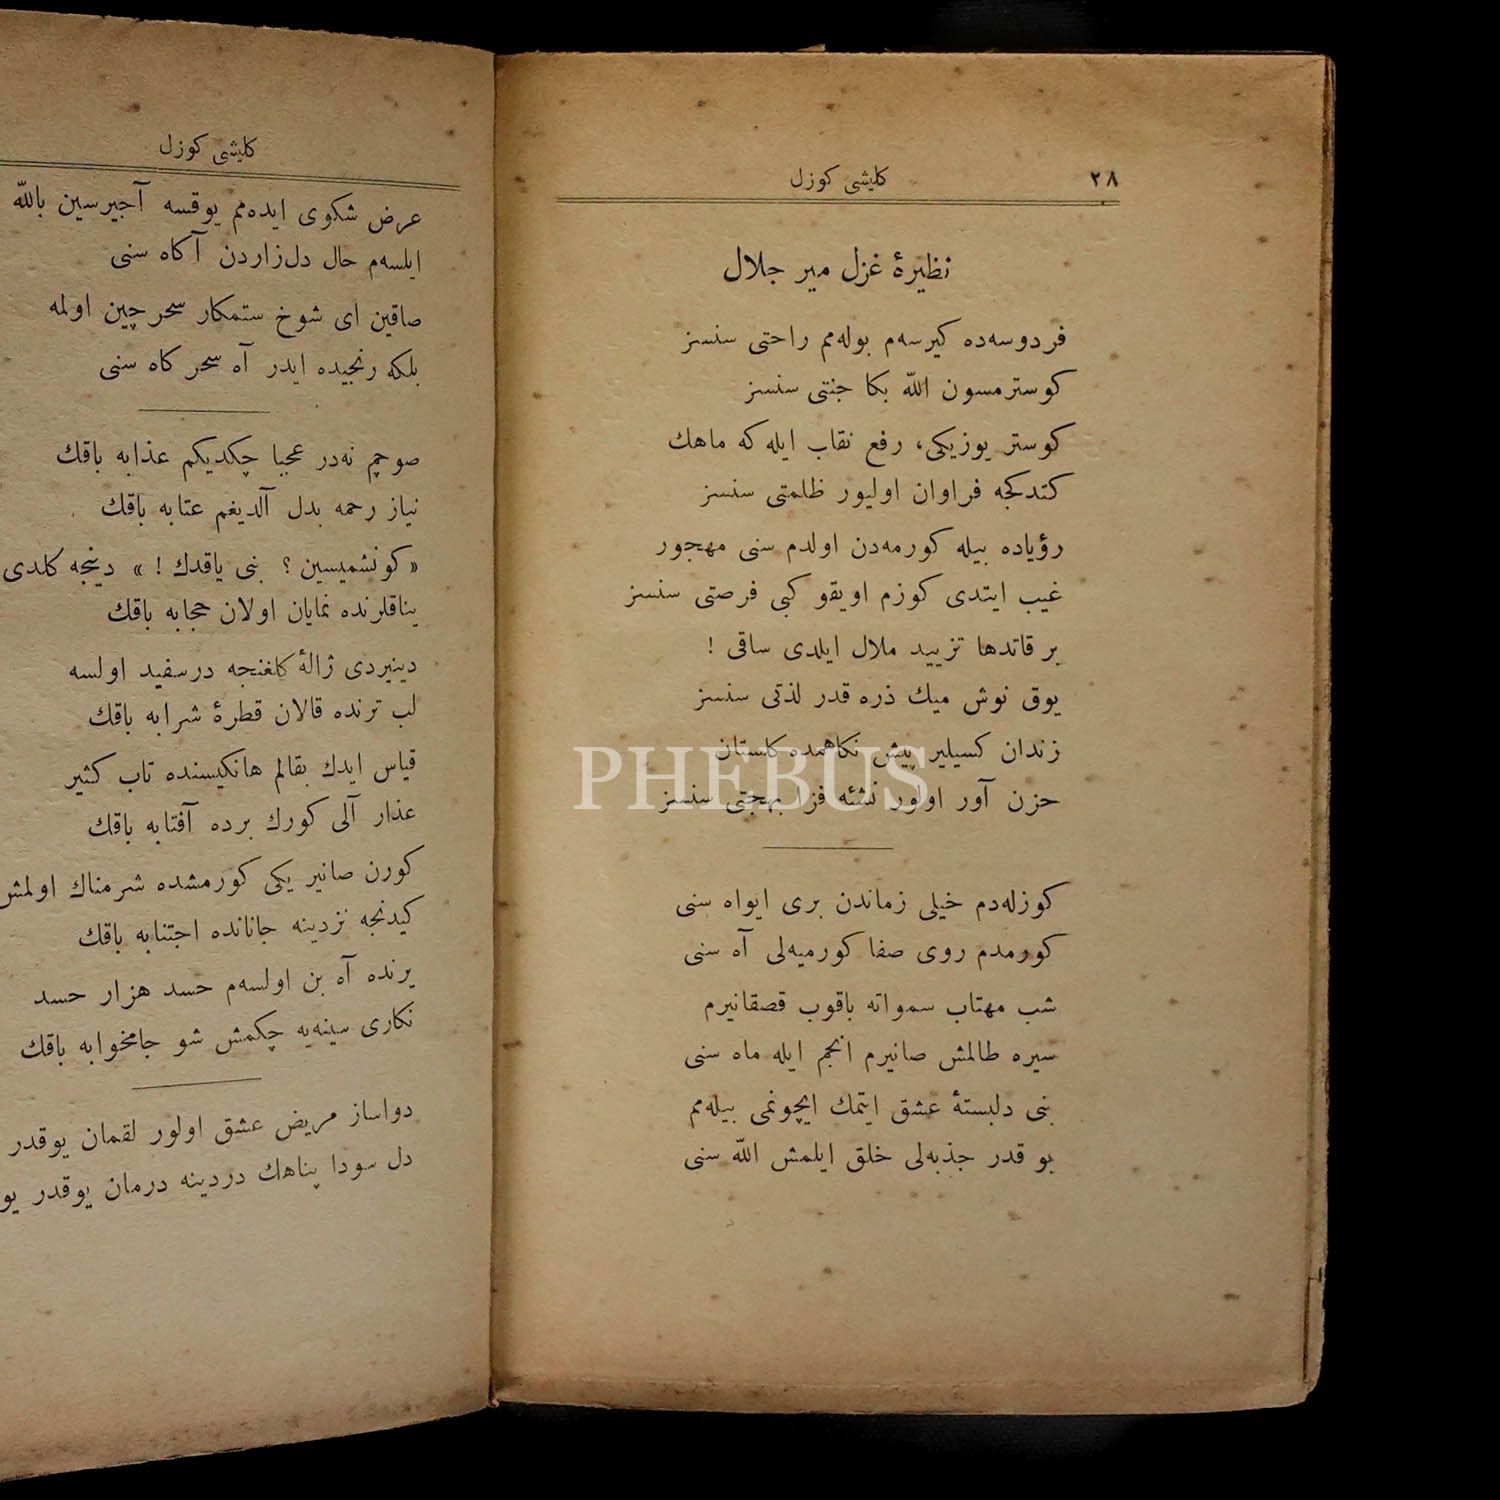 ٢٨
كليشى كوزل
نظيرهٔ غزل مير جلال
فردوسه‌ده كيرسه‌م بوله‌مم راحتى سنسز
كوسترمسون الله بكا جنتى سنسز
كوستر يوزيكى، رفع نقاب ايله كه ماهك
كتدكجه فراوان اوليور ظلمتى سنسز
رؤياده بيله كورمه‌دن اولدم سنى مهجور
غيب ايتدى كوزم اويقو كبى فرصتى سنسز
بر قاتدها تزييد ملال ايلدى ساقى !
يوق نوش ميك ذره قدر لذتى سنسز
زندان كسيلير پيش نكاهمده كلستان
حزن آور اولور نشئه فزا بهجتى سنسز
كوزله‌دم خيلى زماندن برى ايواه سنى
كورمدم روى صفا كورميه‌لى آه سنى
شب مهتاب سمواته باقوب قصقانيرم
سيره طالمش صانيرم انجم ايله ماه سنى
بنى دلبستهٔ عشق ايتمك ايچونمى بيله‌مم
بو قدر جذبه‌لى خلق ايلمش الله سنى
كليشى كوزل
عرض شكوى ايده‌مم يوقسه آجيرسين بالله
ايلسه‌م حال دل‌زاردن آكاه سنى
صاقين اى شوخ ستمكار سحرچين اولمه
بلكه رنجيده ايدر آه سحركاه سنى
صوچم نه‌در عجبا چكديكم عذابه باقك
نياز رحمه بدل آلديغم عتابه باقك
«كونشميسين ؟ بنى ياقدك !» دينجه كلدى
يناقلرنده نمايان اولان حجابه باقك
دينيردى ژالهٔ كلغنجه درسفيد اولسه
لب ترنده قالان قطرهٔ شرابه باقك
قياس ايدك بقالم هانكيسنده تاب كثير
عذار آلى كورك برده آفتابه باقك
كورن صانير يكى كورمشده شرمناك اولمش
كيدنجه نزدينه جانانده اجتنابه باقك
يرنده آه بن اولسه‌م حسد هزار حسد
نكارى سينه‌يه چكمش شو جامخوابه باقك
دواساز مريض عشق اولور لقمان يوقدر
دل سودا پناهك دردينه درمان يوقدر يو
PHEBUS